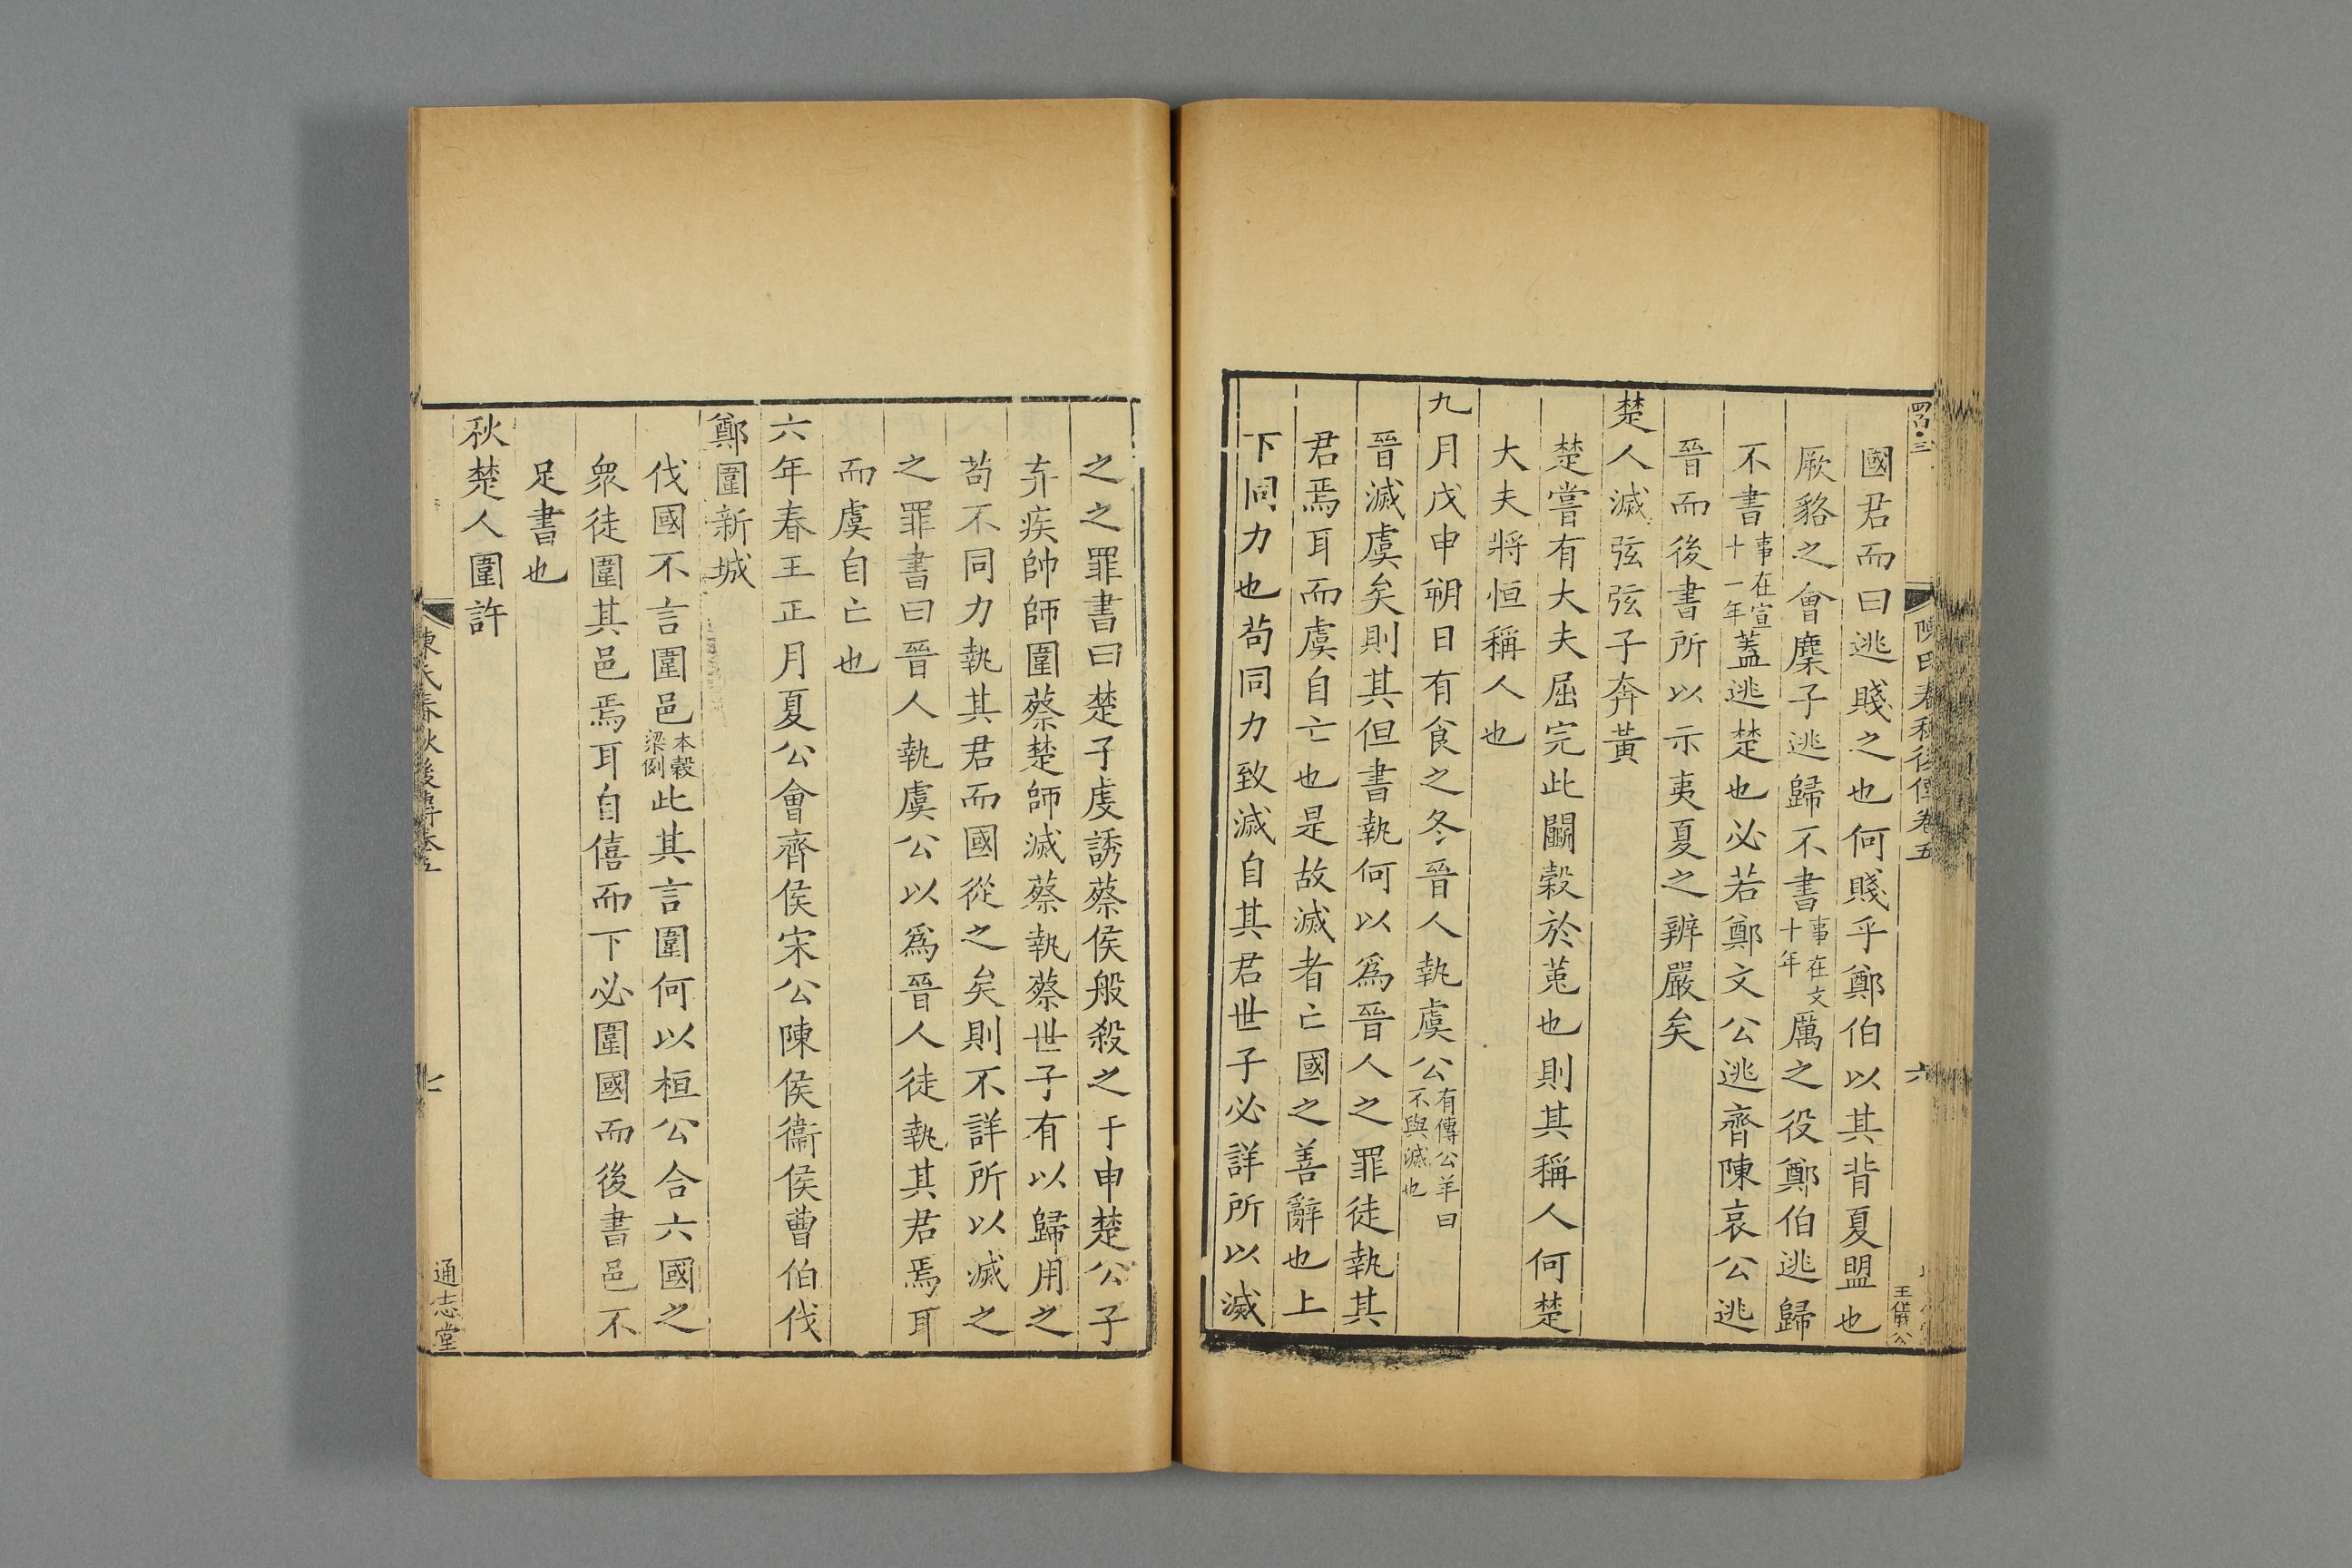 國君而曰逃賤之也何賤乎鄭伯以其背夏盟也
厥貉之會麇子逃歸不書事在文十年厲之役鄭伯逃歸
不書事在宣十一年蓋逃楚也必若鄭文公逃齊陳哀公逃
晉而後書所以示夷夏之辨嚴矣
楚人滅弦弦子奔黃
楚嘗有大夫屈完此鬭穀於菟也則其稱人何楚
大夫將恒稱人也
九月戊申朔日有食之冬晉人執虞公有傳公羊曰不與滅也
晉滅虞矣則其但書執何以爲晉人之罪徒執其
君焉耳而虞自亡也是故滅者亡國之善辭也上
下同力也茍同力致滅自其君世子必詳所以滅
之之罪書曰楚子虔誘蔡侯般殺之于申楚公子
弃疾帥師圍蔡楚師滅蔡執蔡世子有以歸用之
茍不同力執其君而國從之矣則不詳所以滅之
之罪書曰晉人執虞公以爲晉人徒執其君焉耳
而虞自亡也
六年春王正月夏公會齊侯宋公陳侯衞侯曹伯伐
鄭圍新城
伐國不言圍邑本穀梁例此其言圍何以桓公合六國之
衆徒圍其邑焉耳自僖而下必圍國而後書邑不
足書也
秋楚人圍許
陳氏春秋後傳卷五
六
王儀公
陳氏春秋後傳卷五
七
通志堂